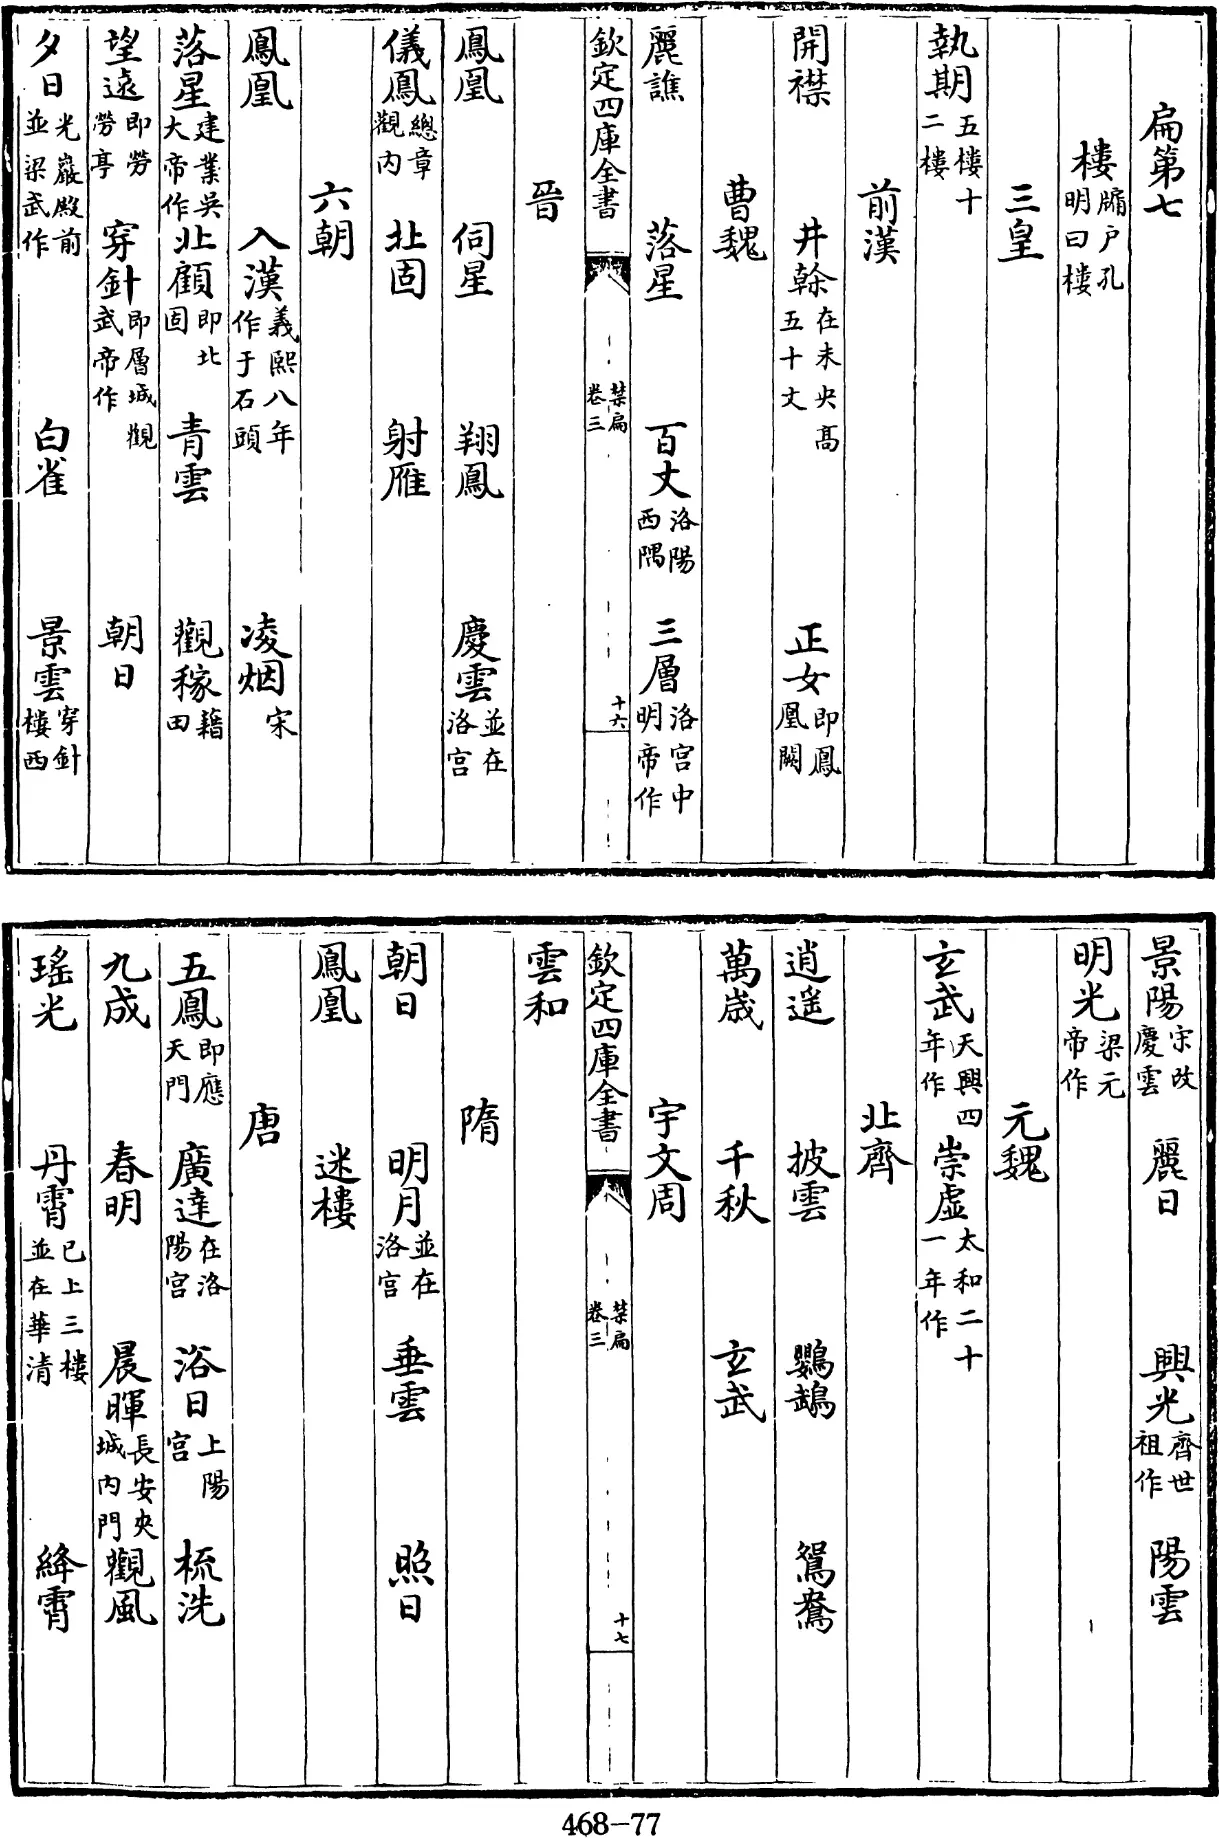 扁第七
樓牖户孔明曰樓
三皇
執期五樓十二樓
前漢
開襟　井榦在未央髙五十丈　正女即鳳凰闕
曹魏
麗譙　落星　百丈洛陽西隅　三層洛宮中明帝作
欽定四庫全書　禁扁卷三　十六
晉
鳳凰　伺星　翔鳳　慶雲並在洛宮
儀鳳總章觀内　北固　射雁
六朝
鳳凰　入漢義熙八年作于石頭　凌烟宋
落星建業吳大帝作　北顧即北固　青雲　觀稼籍田
望遠即勞勞亭　穿針即層城觀武帝作　朝日
夕日光嚴殿前並梁武作　白雀　景雲穿針樓西
景陽宋改慶雲　麗日　興光齊世祖作　陽雲
明光梁元帝作
元魏
玄武天興四年作　崇虚太和二十一年作
北齊
逍遥　披雲　鸚鵡　鴛鴦
萬歲　千秋　玄武
宇文周
欽定四庫全書　禁扁卷三　十七
雲和
隋
朝日　明月並在洛宮　垂雲　照日
鳳凰　迷樓
唐
五鳳即應天門　廣達在洛陽宮　浴日上陽宮　梳洗
九成　春明　晨暉長安央城内門　觀風
瑤光　丹霄已上三樓並在華清　絳霄
468-77